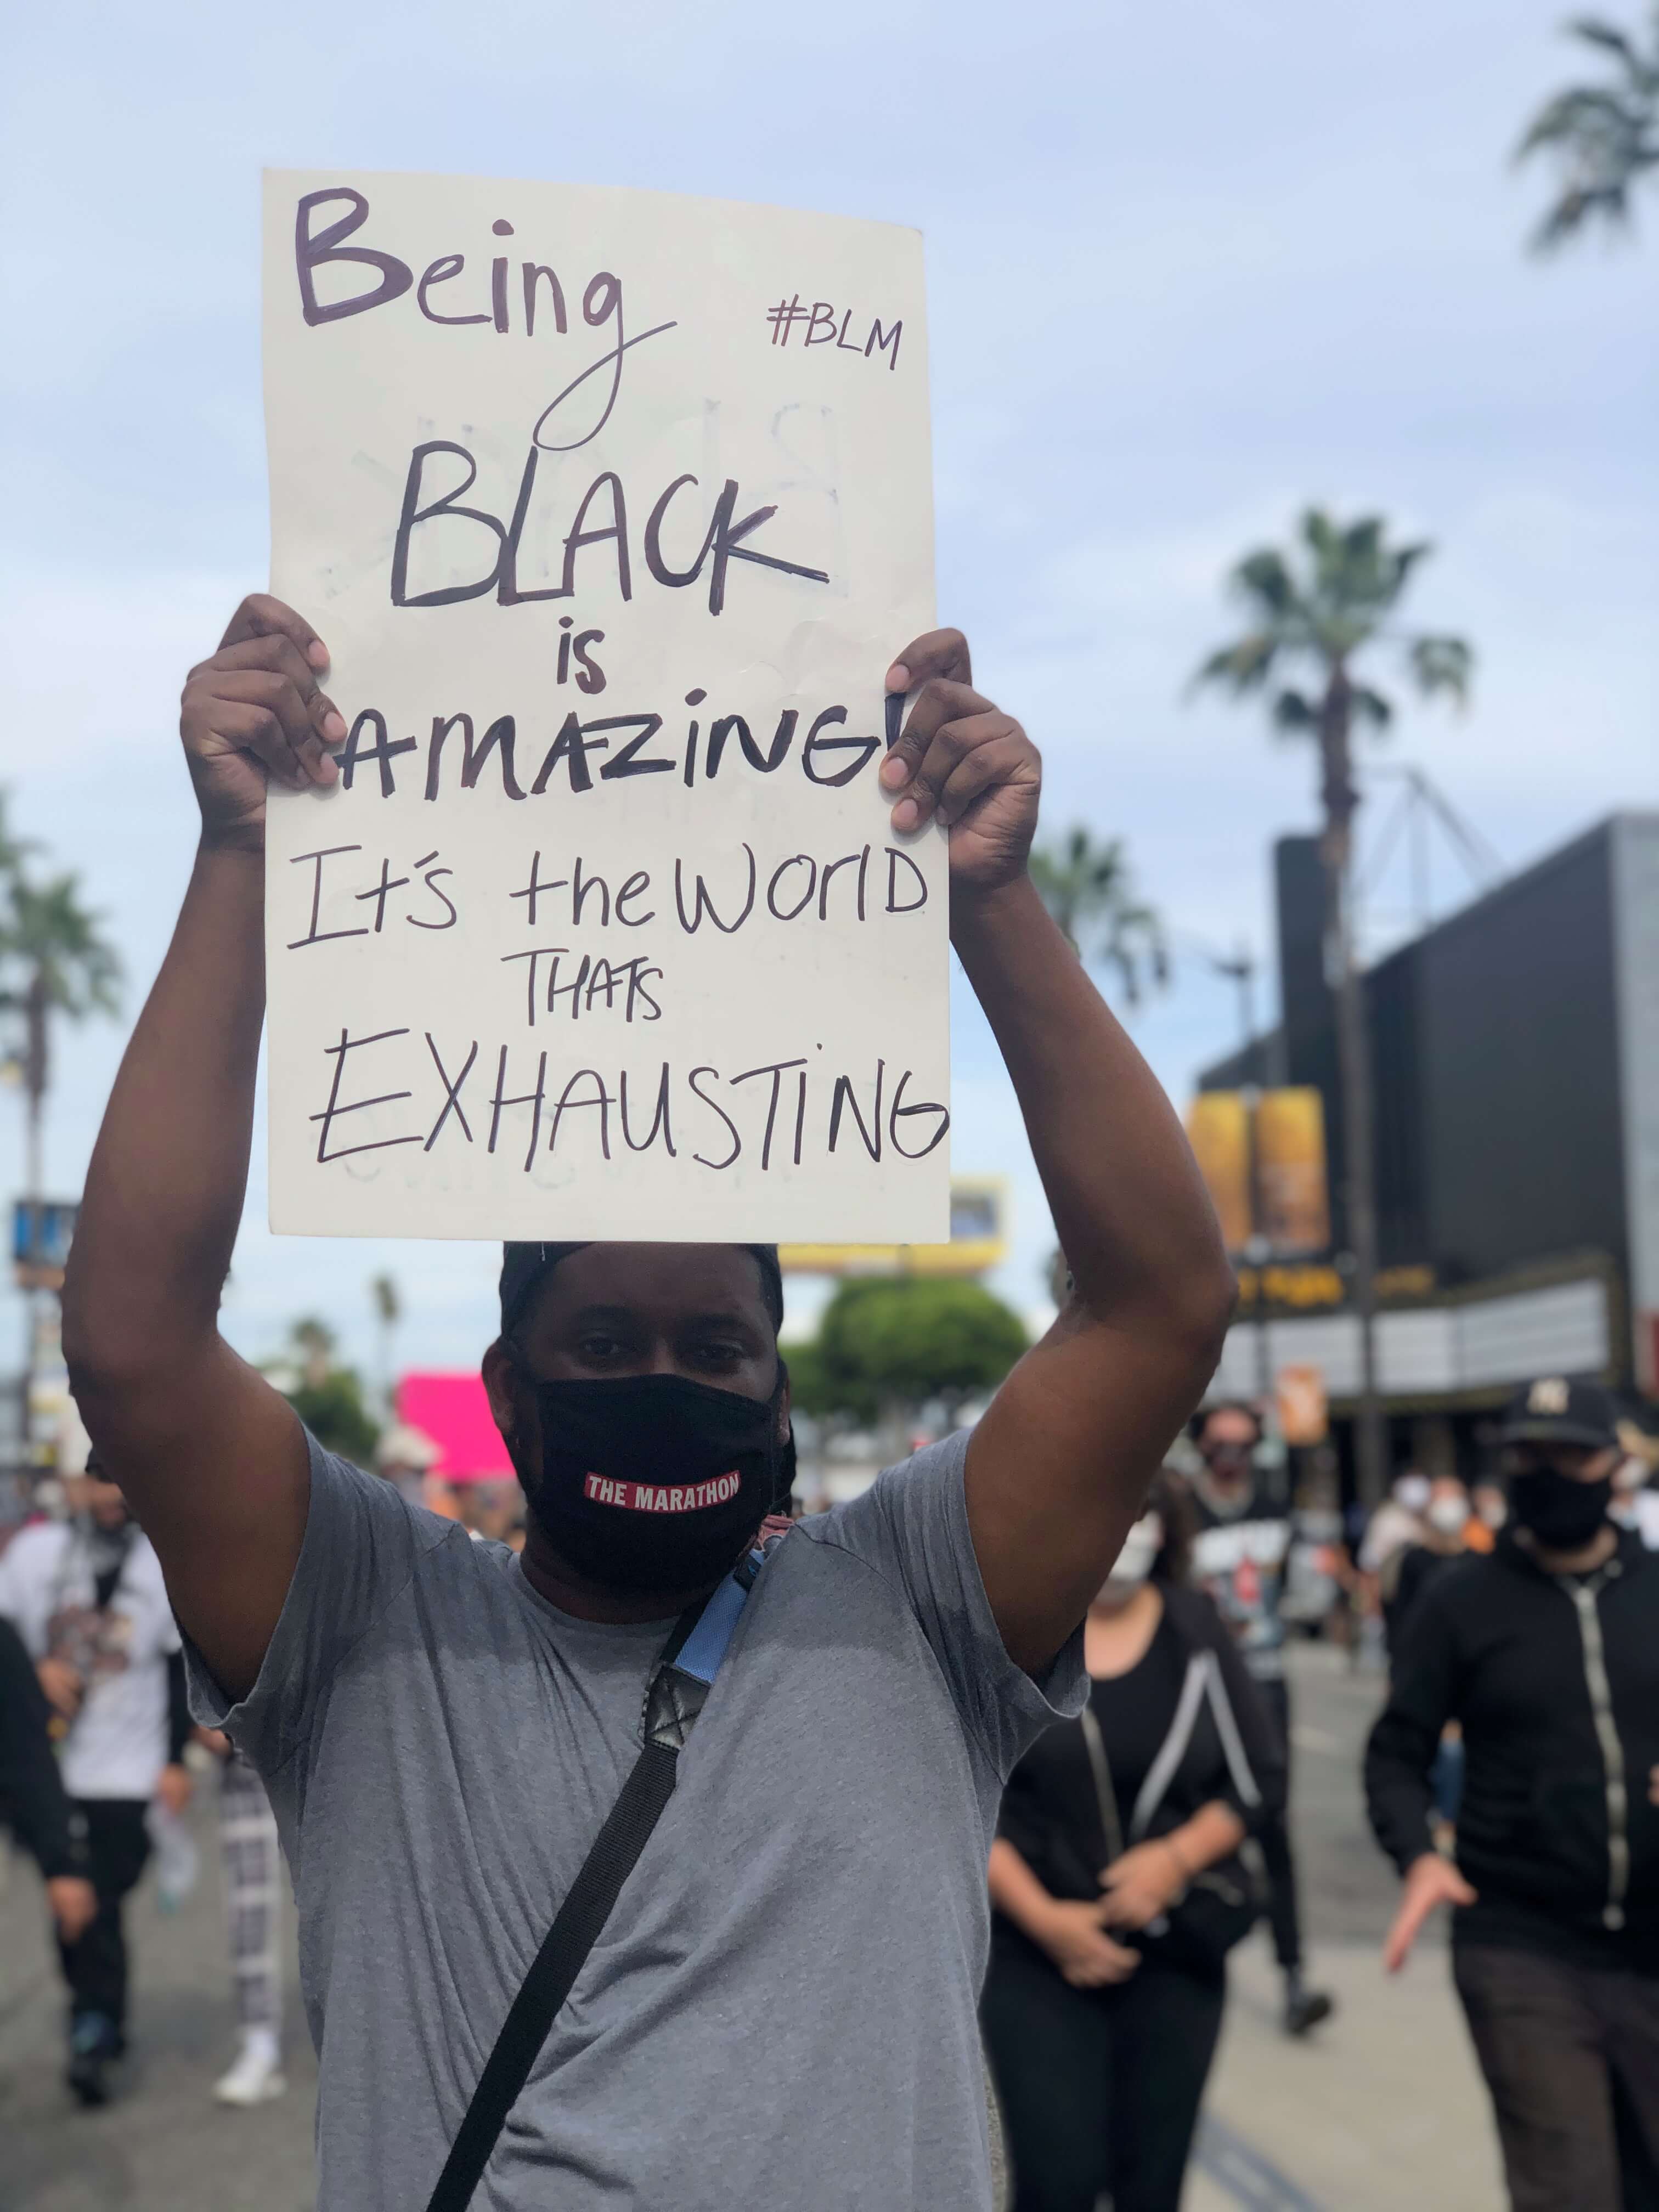 Being
#BLM
BLACK
is
AMAZiNG!
It's the WorlD
THATS
EXHAUSTiNG
THE MARATHON